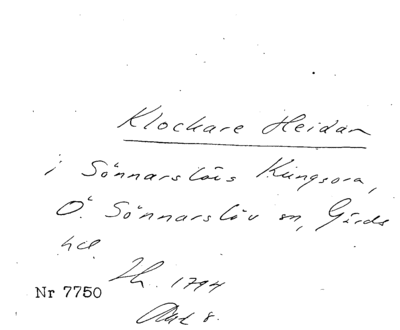 Klockare Heidan
i Sönnarslövs Kungsora,
Ö. Sönnarslöv sn, Gärds
hd.
1794
Nr 7750